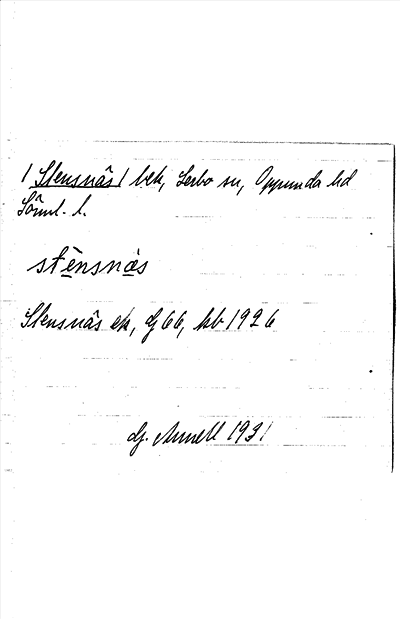 / Stensnäs / bek, Lerbo sn, Oppunda hd
Söml. l.
stènsnäs
Stensnäs ek, G 66, kb 1926
G. Annell 1931